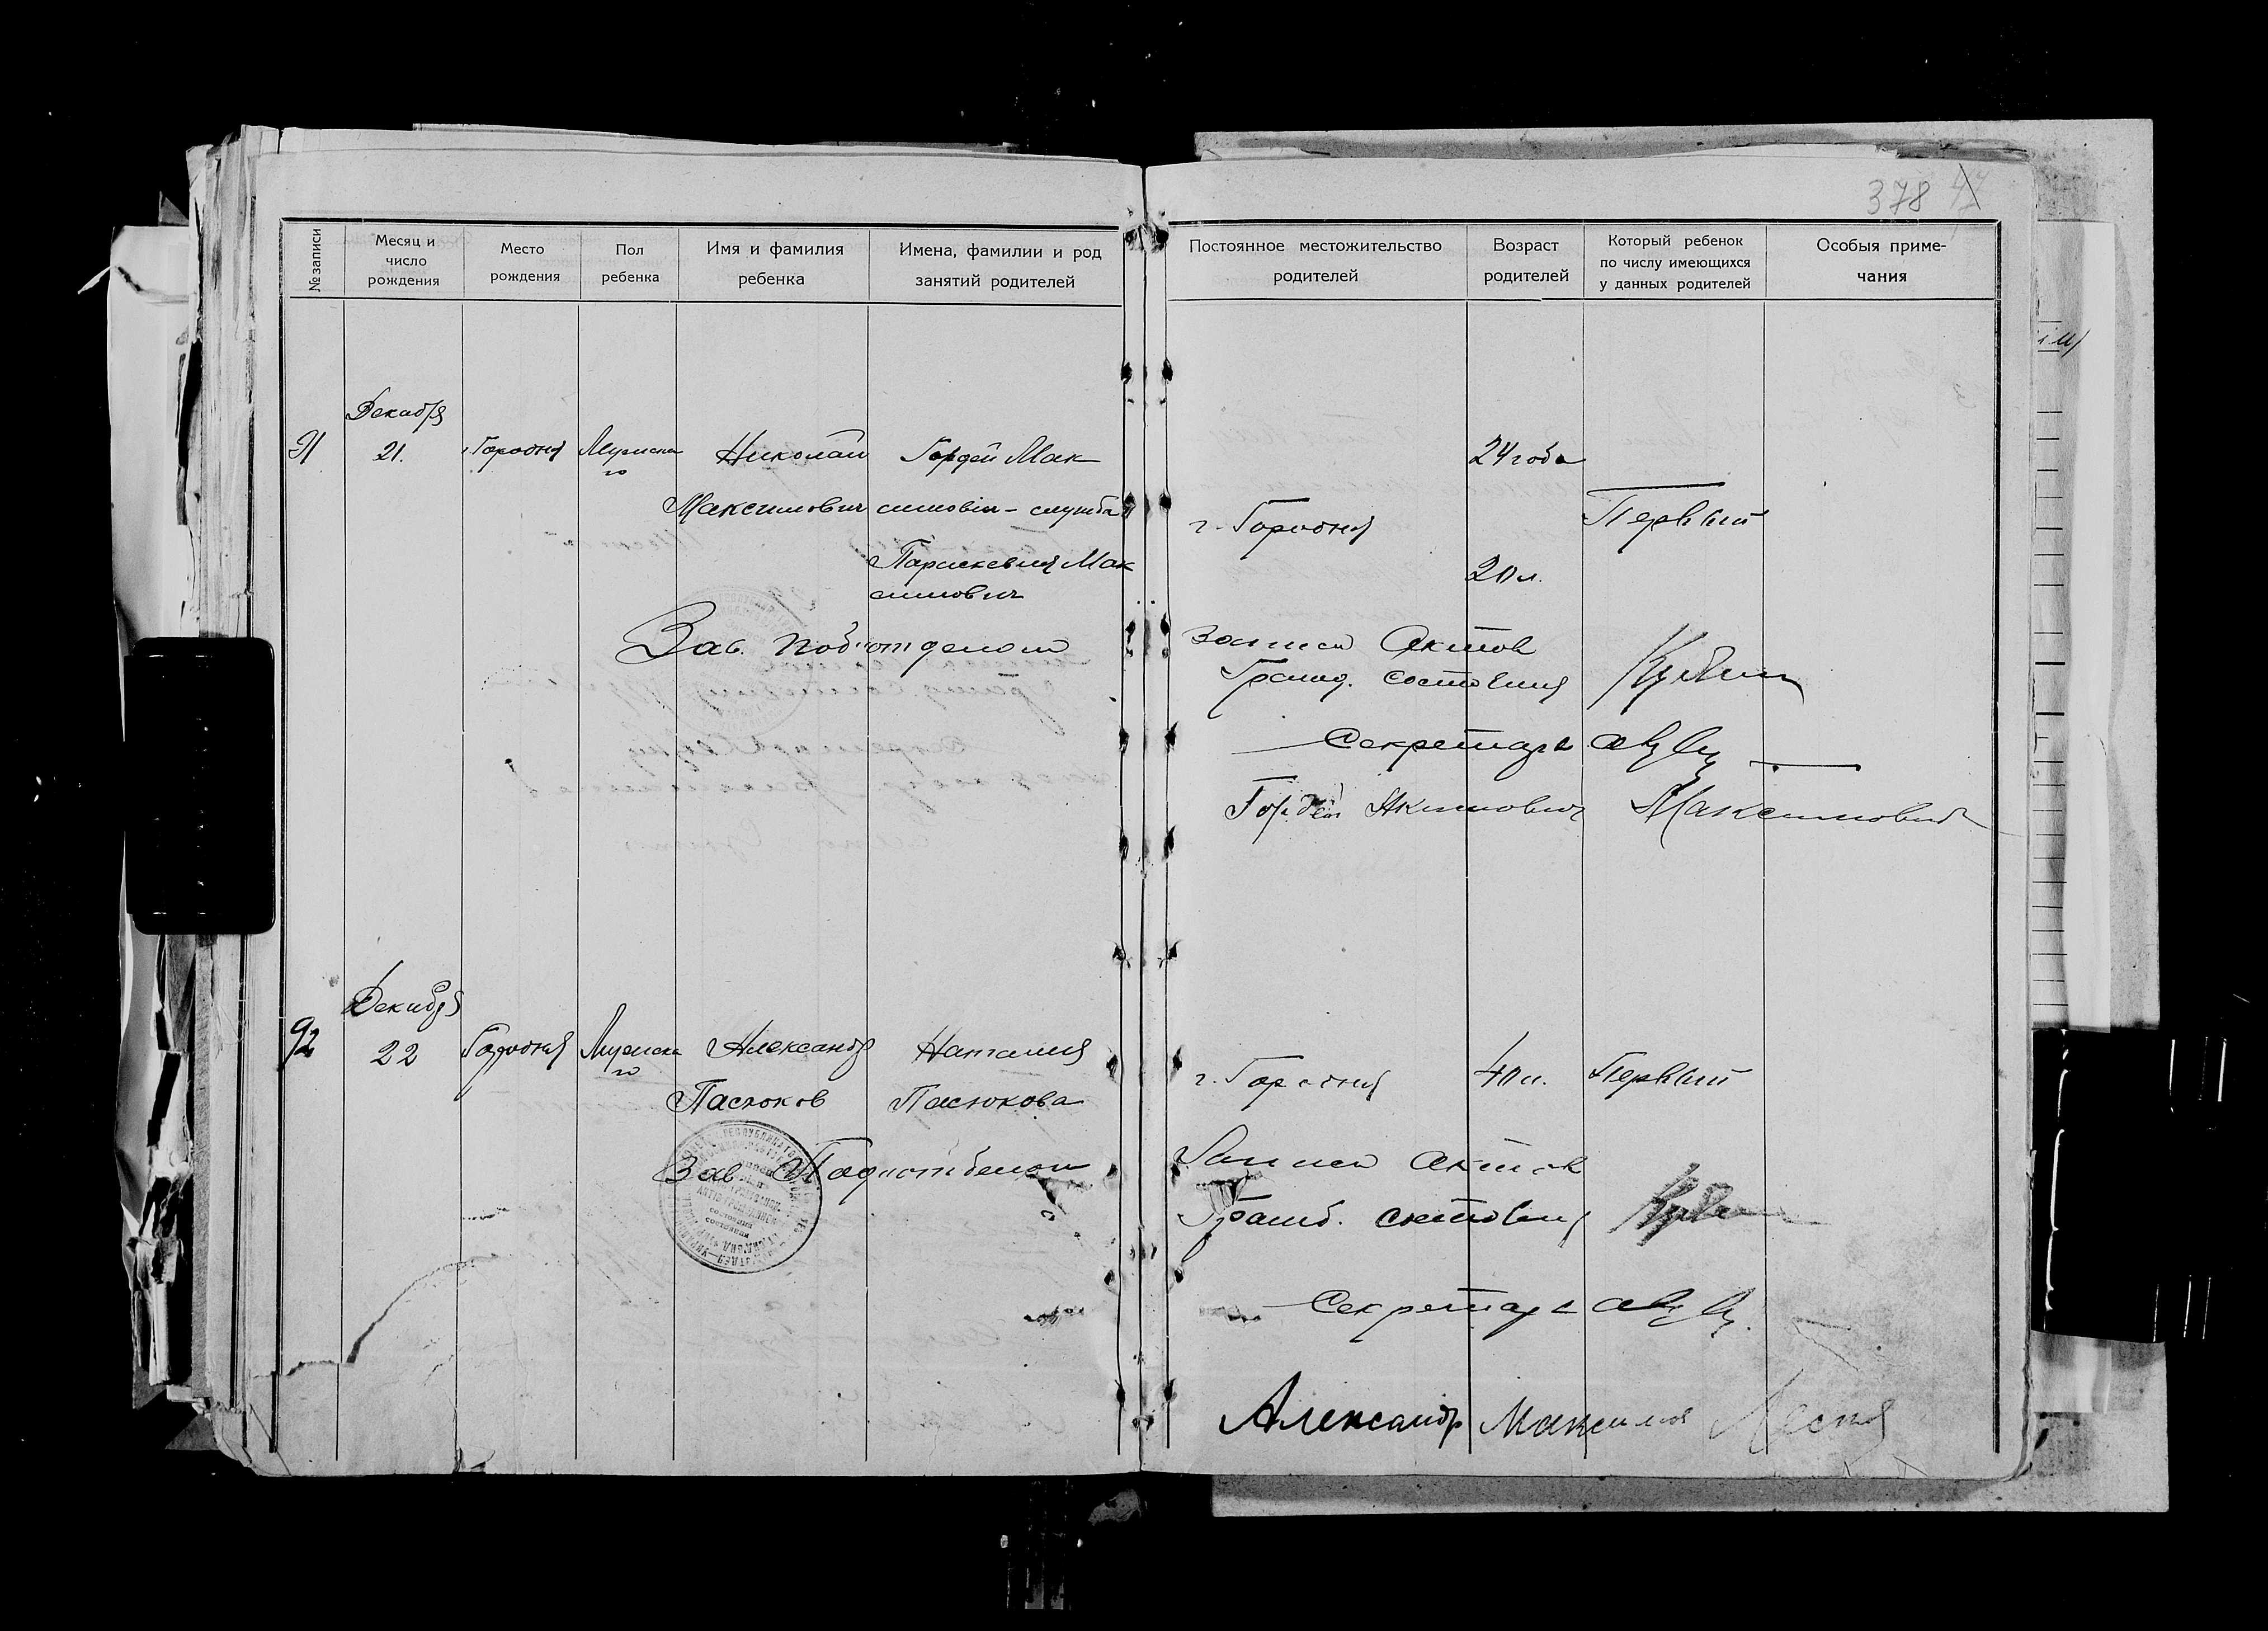 378
№ записи
Месяц и число рождения
Место рождения
Пол ребенка
Имя и фамилия ребенка
Имена, фамилии и род занятий родителей
Постоянное местожительство родителей
Возраст родителей
Который ребенок по числу имеющихся у данных родителей
Особыя примечания
91
Декабря
21.
г. Городня
Мужска
го
Николай
Максимович
Гордей Мак
симович – служба
Параскевия Мак
симович
г. Городня
24 года
20 л.
Первый
Зав. подотделом
записи Актов
Гражд. состояния
Секретарь
Гордей Акимович Максимович
92
Декабря
22
Городня
Мужска
го
Александр
Пасюков
Наталия
Пасюкова
г. Городня
40 л.
Первый
Зав Подотделом
Записи Актов
Гражд. состояния
Секретарь
Александр Максимов